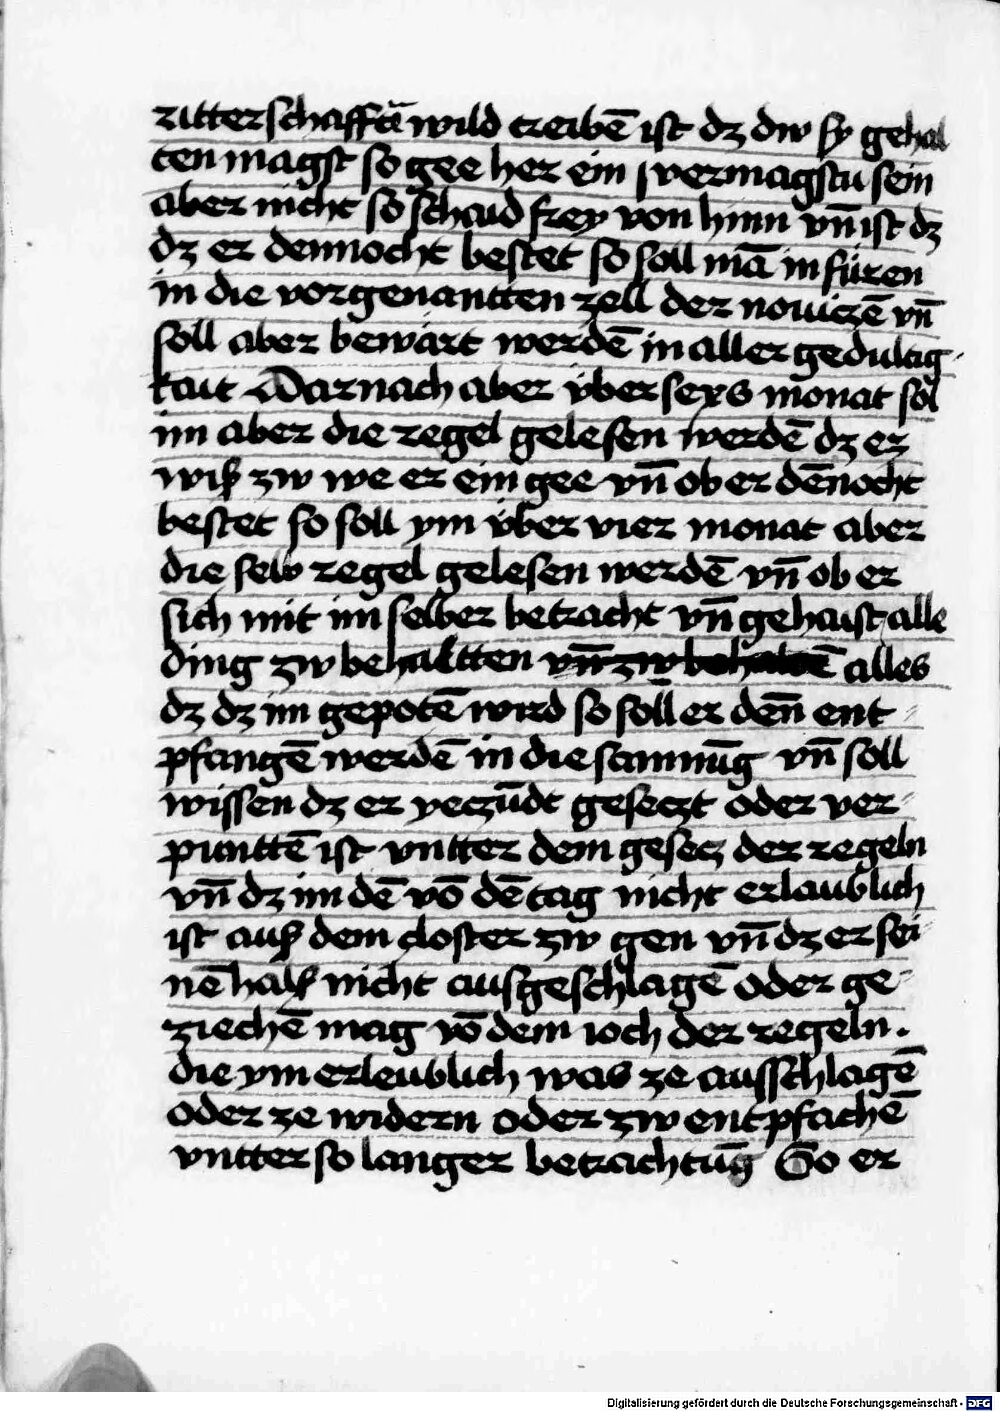 ritterschafftē wild treibē ist dz dw sy gehal
ten magst so gee her ein vermagstu sein
aber nicht so schaid frey von hinn vn̄ ist dz
dz er dennocht bestet so soll mā in füren
in die vorgenantten zell der nouiczē vn̄
soll aber bewärt werdē in aller gedultig-
kait Darnach aber über sexs monat sol
im aber die regel gelesen werdē dz er
wiß zw we er ein gee vn̄ ob er dēnocht
bestet so soll ym über vier monat aber
die selb regel gelesen werdē vn̄ ob er
sich mit im selber betracht vn̄ gehaist alle
ding zw behaltten vn̄ zw behaltē alles
dz dz im gepotē wird so soll er den̄ ent-
pfangē werdē in die samnūg vn̄ soll
wissen dz er yeczūdt geseczt oder ver-
punttē ist vntter dem gesecz der regeln
vn̄ dz im dē vō dē tag nicht erlaublich
ist auß dem closter zw gen vn̄ dz er sei-
nē halß nicht ausgeschlagē oder ge-
ziechē mag vō dem ioch der regeln.
die ym erleublich was ze ausschlagē
oder ze widern oder zw entpfachē
vntter so langer betrachtūg So er
Digitalisierung gefördert durch die Deutsche Forschungsgemeinschaft - DFG